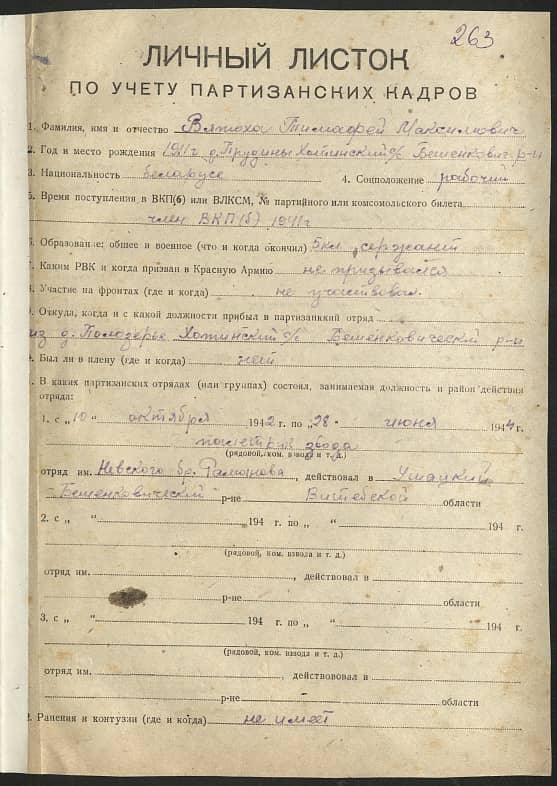 263
ЛИЧНЫЙ ЛИСТОК
ПО УЧЕТУ ПАРТИЗАНСКИХ КАДРОВ
1. Фамилия, имя и отчество Вятоха Тимафей Максимович
2. Год и место рождения 1911 г д. Прудины Хотинский с/с Бешенкович. р-н
3. Национальность беларусс 4. Соцположение рабочий
5. Время поступления в ВКП(б) или ВЛКСМ, № партийного или комсомольского билета
член ВКП(б) 1941 г
6. Образование; общее и военное (что и когда окончил) 5 кл сержант
7. Каким РВК и когда призван в Красную Армию не призывался
8. Участие на фронтах (где и когда) не участвовал
. Откуда, когда и с какой должности прибыл в партизанкий отряд
из д. Полозерье Хотинский с/с Бешенковический р-н
. Был ли в плену (где и когда) нет
. В каких партизанских отрядах (или группах) состоял, занимаемая должность и район действия
отряда:
1. с „10" октября 1942 г. по „28" июня 1944 г.
взвода
(рядовой, ком. взвода и т. д.)
отряд им. Невского бр. Рамонова, действовал в
Бешенковический р-не Витебской области
2. с „ " 194 г. по „ " 194 г.
(рядовой, ком. взвода и т. д.)
отряд им. , действовал в
р-не области
3. с „ " 194 г. по „ " 194 г.
(рядовой, ком. взвода и т. д.)
отряд им. , действововал в
р-не области
. Ранения и контузии (где и когда) не имет